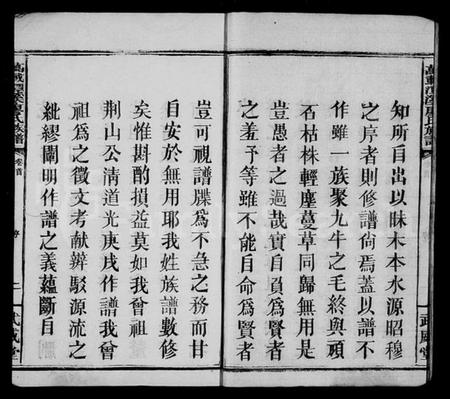 知所自出以昧木本水源昭穆
之序者則修譜尙焉蓋以譜不
作雖一族聚九牛之毛終與頑
石枯株輕塵蔓草同歸無用是
豈愚者之過哉實自負爲賢者
之羞予等雖不能自命爲賢者
豈可視譜牒爲不急之務而甘
自安於無用耶我姓族譜數修
矣惟斟酌損益莫如我曾祖
荆山公清道光庚戌作譜我曾
祖爲之徵文考献辨駁源流之
紕繆闡明作譜之義蘊斷自
卷首
二
武威堂